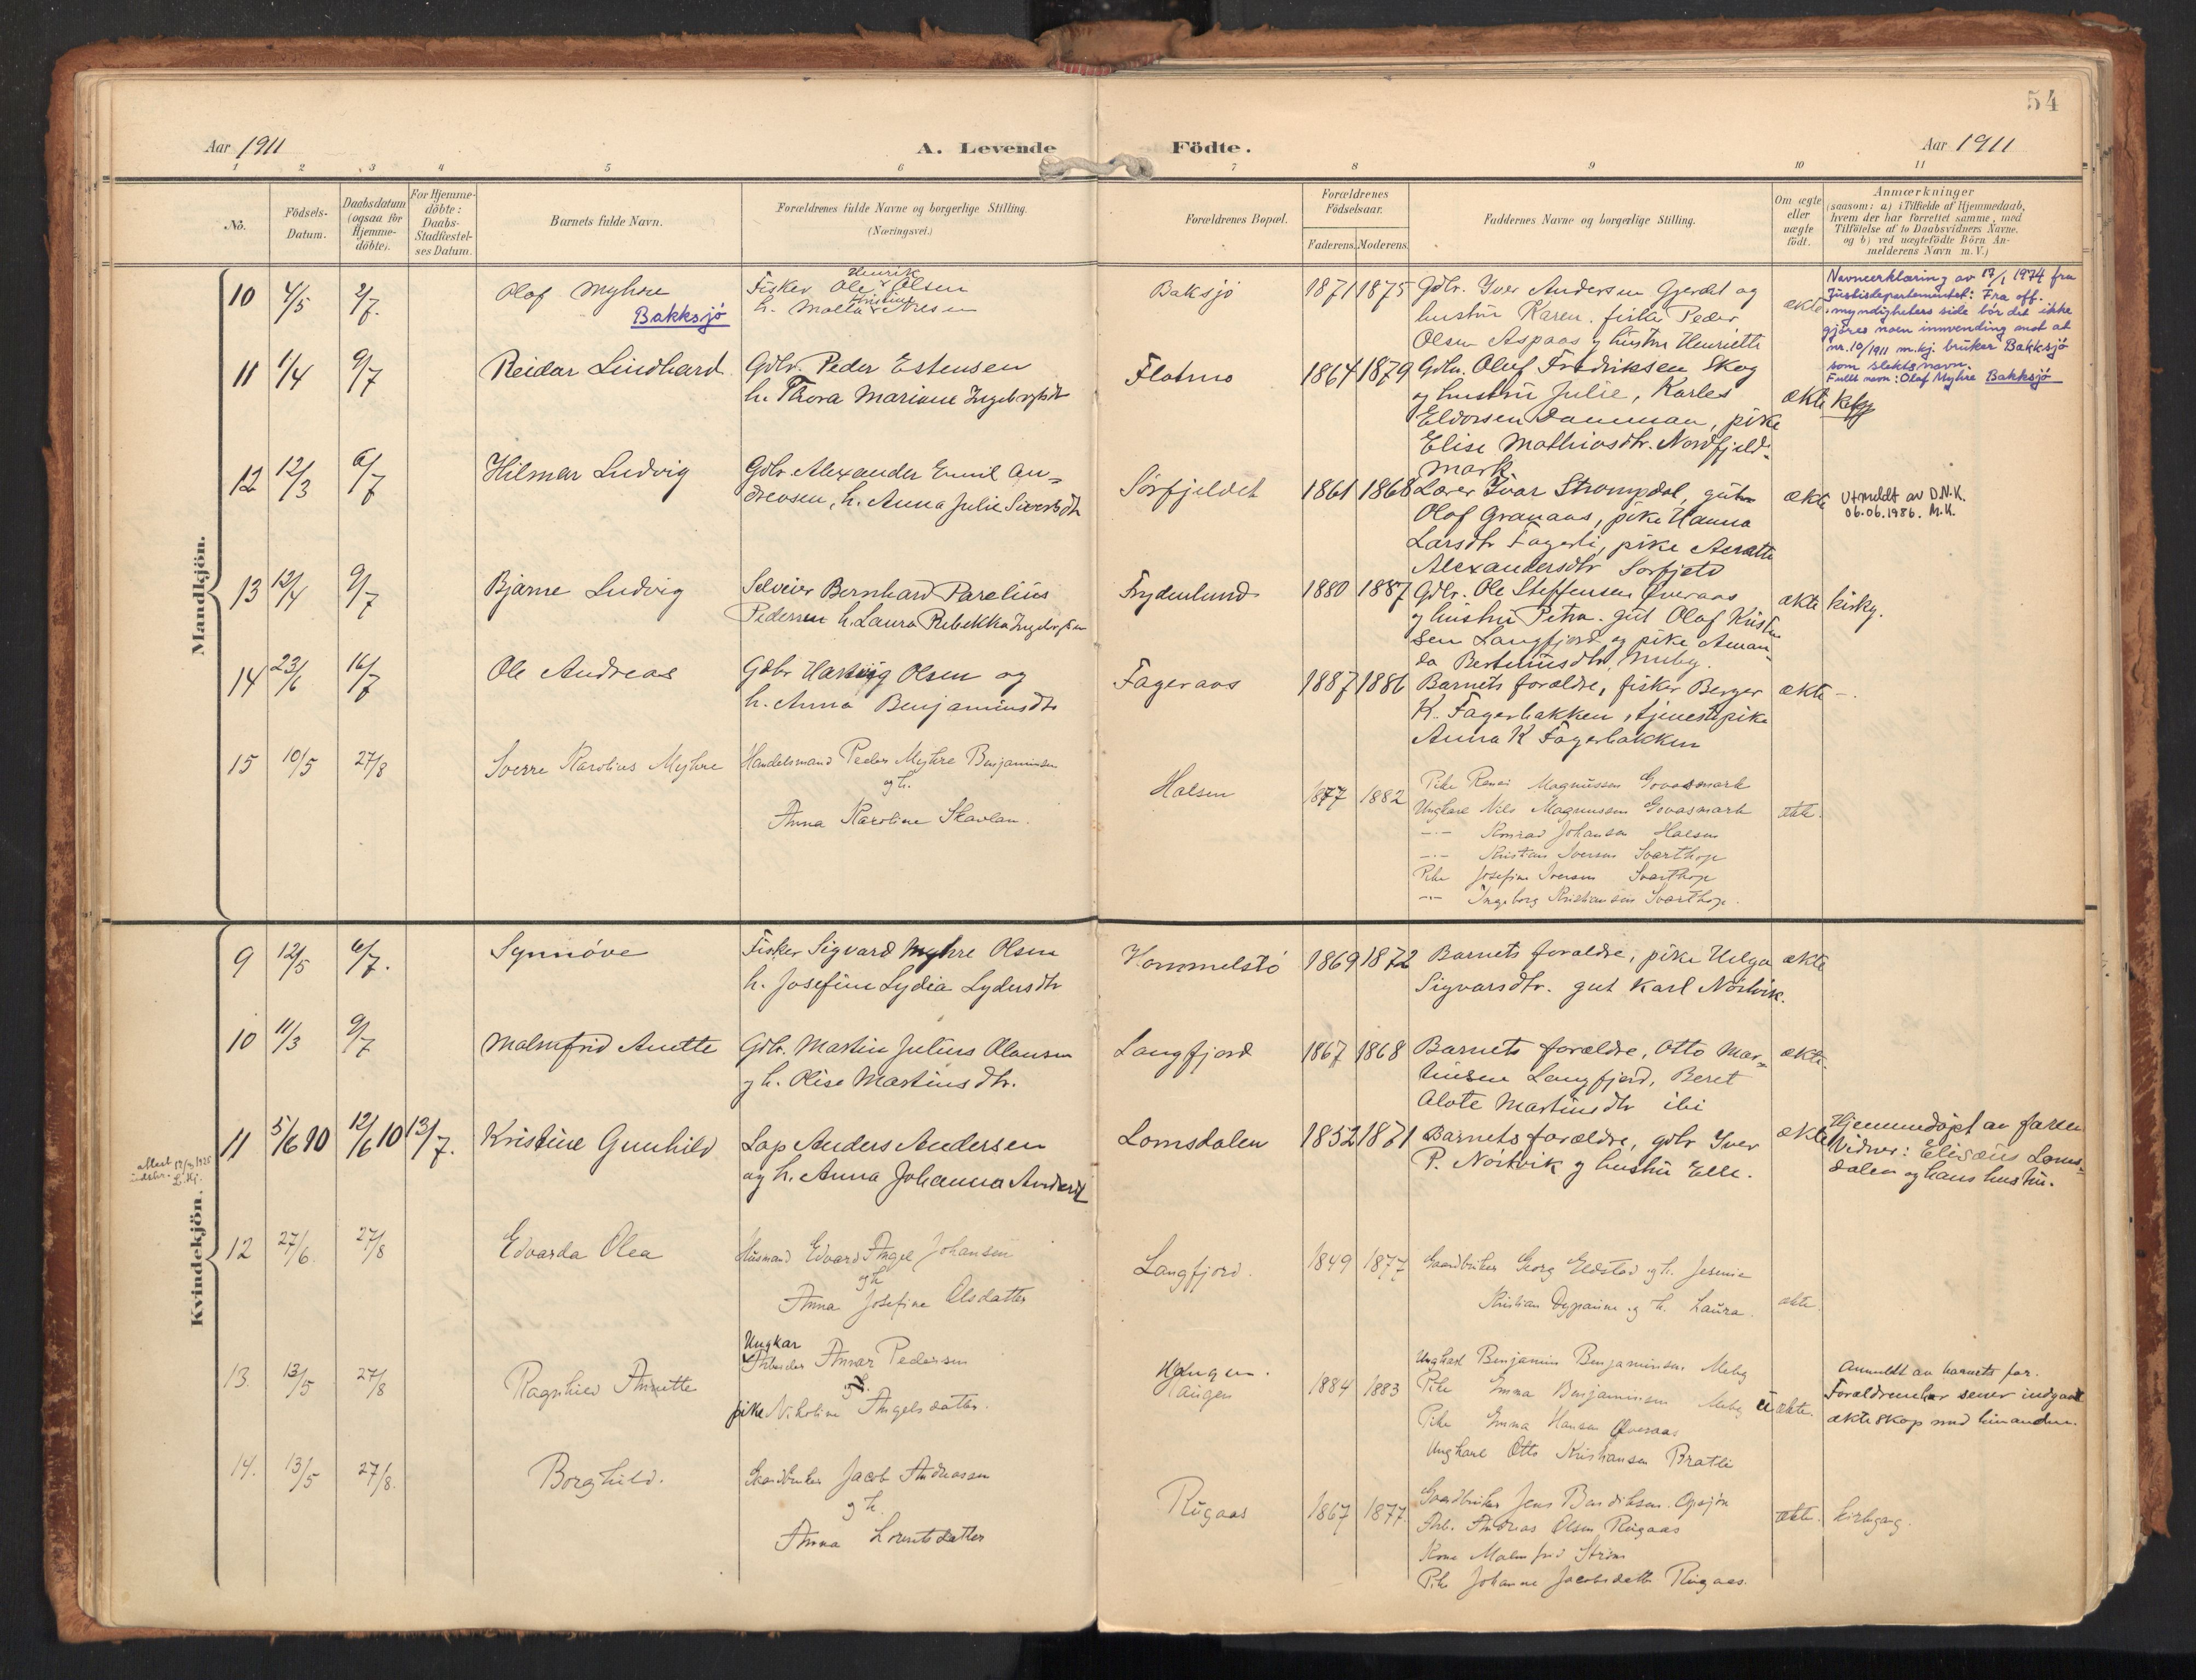 54
Aar 1911
A. Levende
Födte.
Aar 1911
1 2 3 4 5 6 7 8 9 10 11
No.
Födsels-
Datum.
Daabsdatum
(ogsaa for
Hjemme-
döbte).
For Hjemme-
döbte:
Daabs-
Stadfæstel-
ses Datum.
Barnets fulde Navn.
Forældrenes fulde Navne og borgerlige Stilling.
(Næringsvei.)
Forældrenes Bopæl.
Forældrenes
Födselsaar.
Faderens. Moderens.
Faddernes Navne og borgerlige Stilling.
Om ægte
eller
uægte
født.
Anmærkninger
(saasom: a) i Tilfælde af Hjemmedaab,
hvem der har forrettet samme, med
Tilföielse af to Daabsvidners Navne.
og b) ved uægtefödte Börn An-
melderens Navn m.V.)
Mandkjön.
10 4/5 2/7.
Olaf Myhre
Bakksjö
Fisker Ole Henrik Olsen
h. Kristine
Baksjö
1871 1875
Gdbr. Iver Andersen Gjerdet og
hustru Karen. fisker Peder
Olsen Aspaas og hustru Henriette
ekte
Navneerklæring av 17/1 1974 fra
Justisdepartementet: Fra off.
myndigheters side bör det ikke
gjöres noen innvending mot at
nr. 10/1911 m.kj. bruker Bakksjö
som slektsnavn.
Fullt navn: Olaf Myhre Bakksjö
11 1/4 9/7
Reidar Lindhard
Gdbr. Peder Estensen
h. Thora Mariane
Flatmo
1864 1879
Gdbr. Oluf Fredriksen Skog
og hustru Julie, Karles
Eldorsen Damman, pike
Elise Mathiasdtr. Nordfjeld-
mark.
ekte
12 12/3 6/7
Hilmar Ludvig
Gdbr. Alexander Emil An-
dreasen, h. Anna Julie Sivertsdtr
Sörfjeldet
1861 1868
Lærer Ivar Strompdal, gut
Olaf Granaas, pike Hanna
Larsdtr Fagerli, pike
Alexandersdtr Sörfjeld
ekte
Utmeldt av D.N.K.
06.06.1986. M.K.
13 12/4 9/7
Bjarne Ludvig
Selveier Bernhard Parelius
Pedersen h. Laura Rebekka
Frydenlund
1880 1887
Gdbr. Ole Steffensen Överaas
og hustru Petra. gut Olaf
sen Langfjord og pike Aman-
da
ekte
kirkg.
14 23/6 16/7
Ole Andreas
Gdbr Hartvig Olsen og
h. Anna Benjaminsdtr
Fageraas
1887 1886
Barnets forældre, fisker Berger
K. Fagerbakken, tjenestepike
Anna K Fagerbakken
ekte -.
15 10/5 27/8
Sverre Karolius Myhre
Handelsmand Peder Myhre Benjaminsen
og h.
Anna Karoline Skavlan.
Halsen
1877 1882
Pike Magnussen Govasmark
Ungkarl Nils Magnussen Govasmark
-"- Konrad Johansen Halsen
-"- Kristian Iversen Svarthop
Pike Josefine Iversen Svarthop
-"- Ingeborg Kristiansen Svarthop.
ekte.
Kvindekjön.
9 12/5 6/7.
Synnöve
Fisker Sigvard Myhre Olsen
h. Josefine Lydia Lydersdtr
Hommelstö
1869 1872
Barnets forældre, pike Helga
Sigvarsdtr. gut Karl Nöstvik.
ekte
10 11/3 9/7
Malmfrid Anette
Gdbr. Martin Julius Olausen
og h. Olise Martinsdtr.
Langfjord
1867 1868
Barnets forældre, Otto Mar-
tinsen Langfjord, Beret
Alote Martinsdtr ibi
ekte.
11 5/6 10 12/6 10 13/7.
attest 17/3 1925
Kristine Gunhild
Lap Anders Andersen
og h. Anna Johanna
Lomsdalen
1852 1871
Barnets forældre, gdbr Iver
P. Nöstvik og hustru Elle.
ekte
Hjemmedöpt av faren
Vidner: Elisæus Loms-
dalen og hans hustru.
12 27/6 27/8
Edvarda Olea
Husmand Edvard Angel Johansen
og h
Anna Josefine Olsdatter
Langfjord.
1849 1877
Gaardbruker Georg Eldstad og h. Jesine
Kristian og h. Laura.
ekte.
13. 13/5 27/8
Ragnhild Annette
Ungkar
Arbeider Annar Pedersen
og h.
pike Nikoline Angelsdatter.
Haugen
1884 1883
Ungkarl Benjamin Benjaminsen Meby
Pike Emma Benjaminsen Meby
Pike Emma Hansen Överaas
Ungkarl Otto Kristiansen Bratli
uekte.
Anmeldt av barnets far.
Forældrene har sener indgaat
ekteskap med hinanden.
14. 13/5 27/8.
Borghild.
Gaardbruker Jacob Andreassen
og h.
Anna Lorentsdatter
Rugaas
1867 1877
Gaardbruker Jens Bendiksen
Arb. Andreas Olsen Rugaas
Kone Malmfrid Ström
Pike Johanne Jacobsdatter Rugaas.
ekte.
kirkegang.